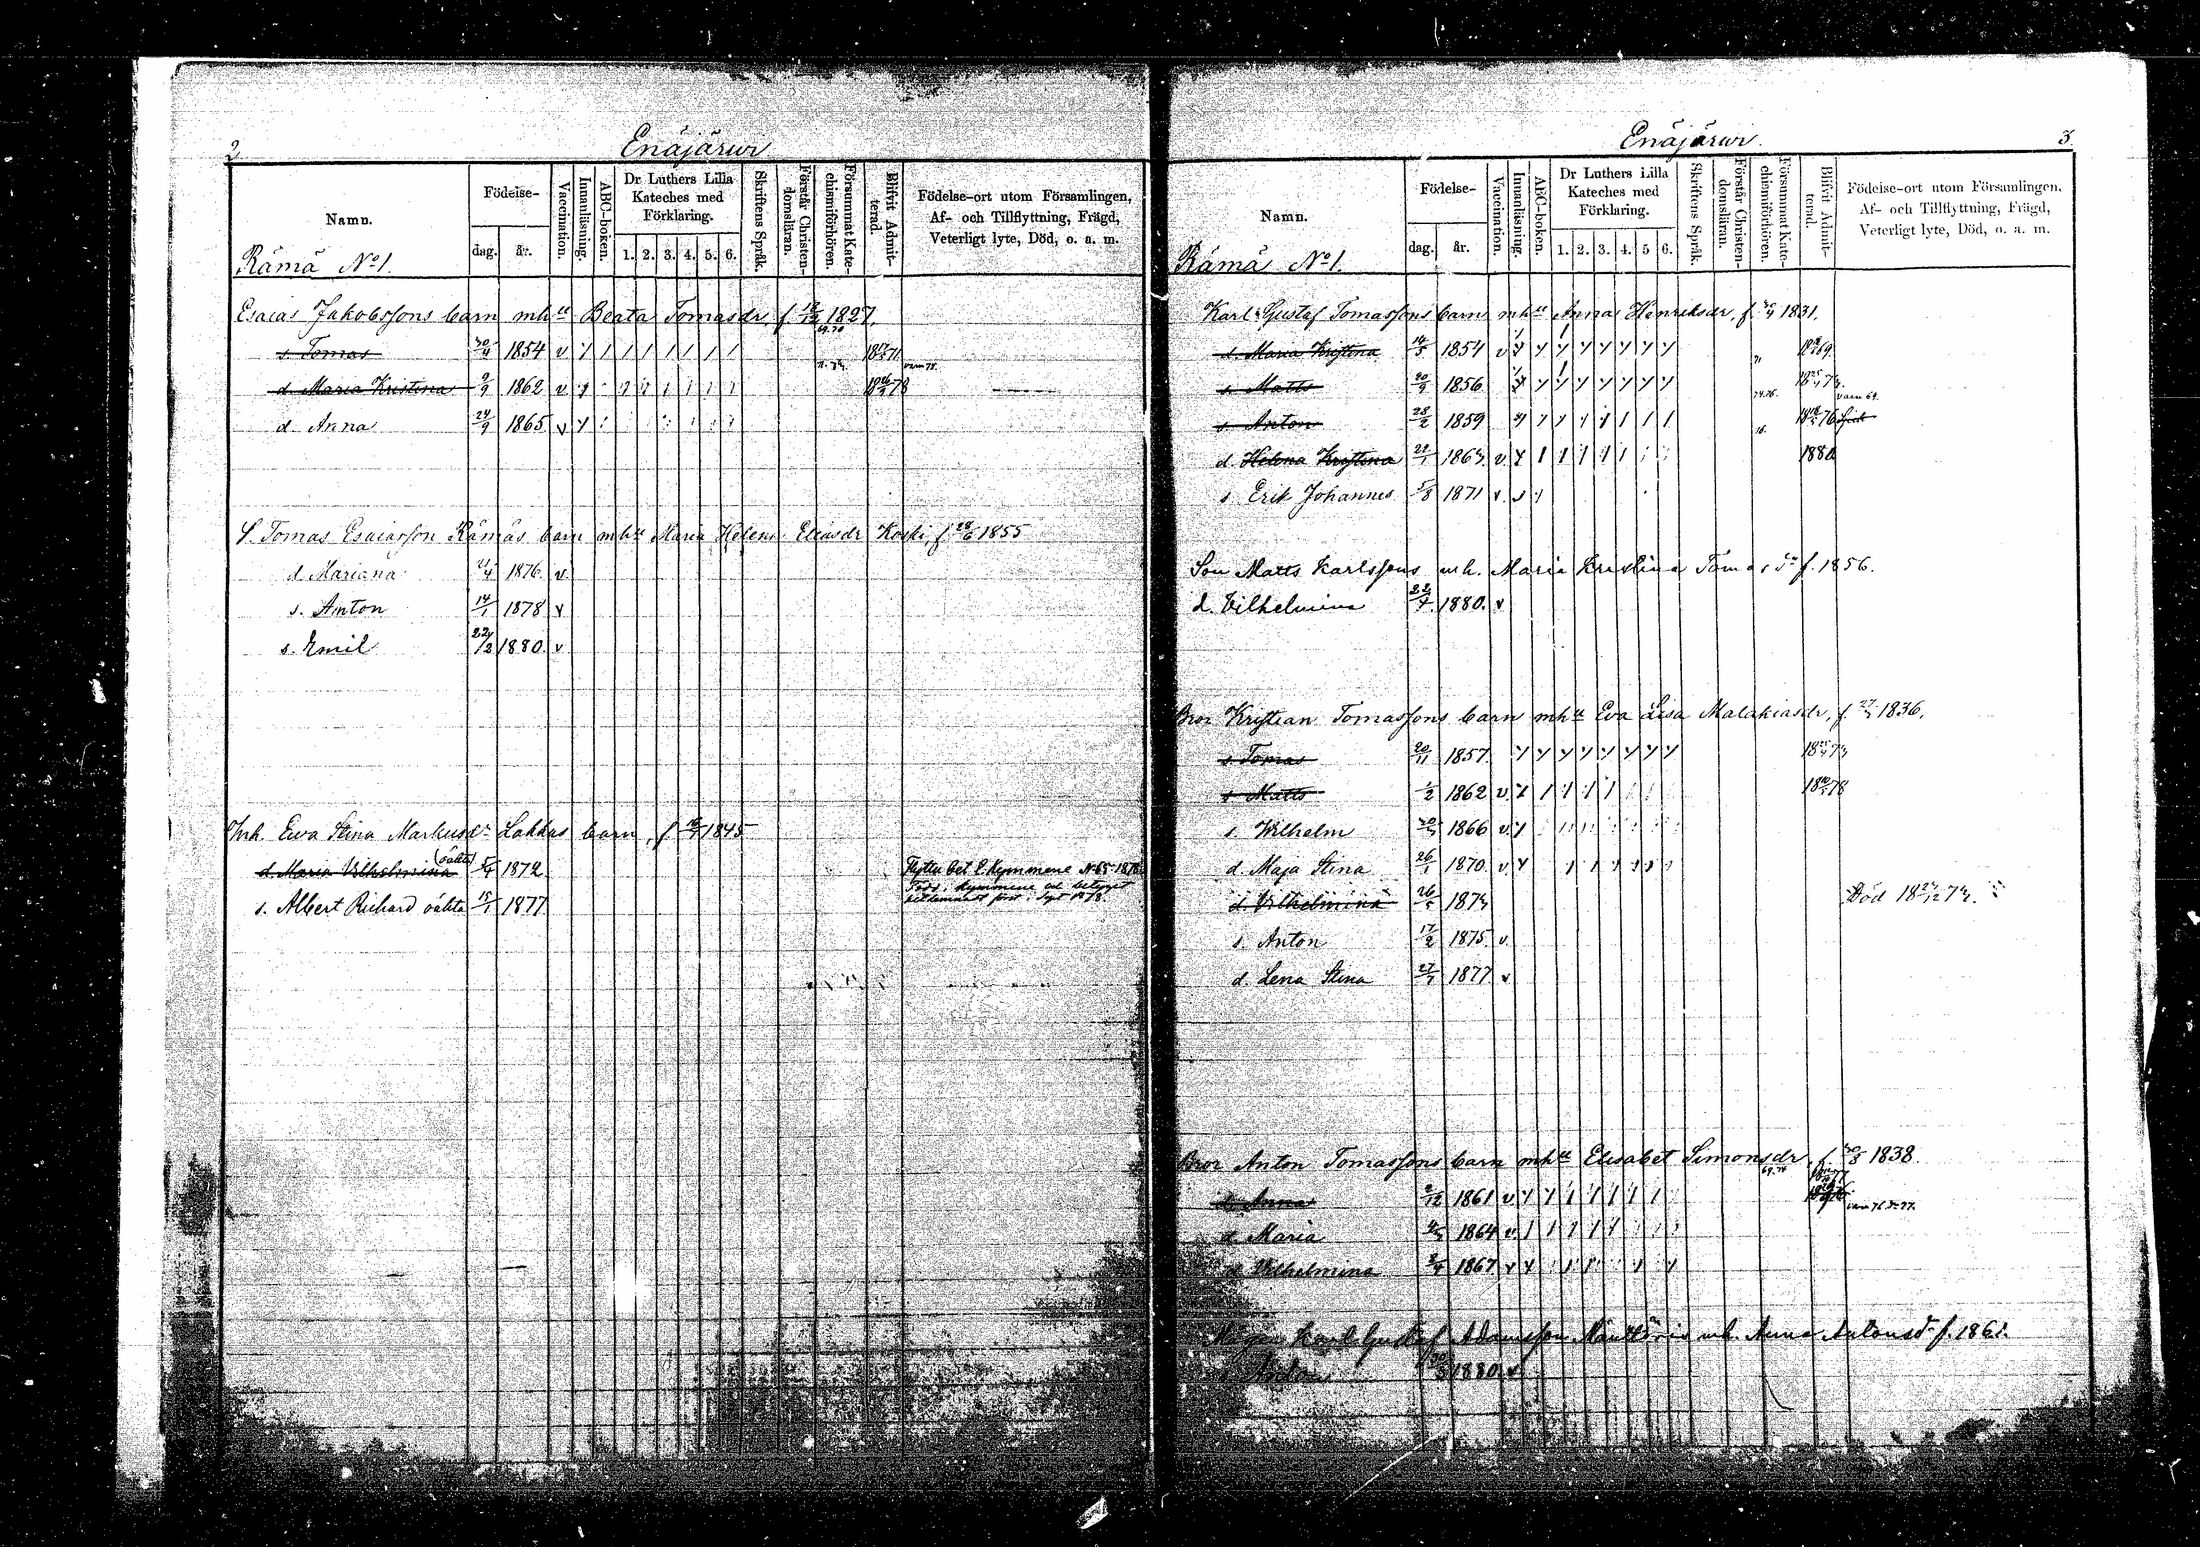 2
Enäjärwi
Namn.
Födelse-
dag.
år.
Vaccination.
Innanläsning.
ABC-boken.
Dr Luthers Lilla
Kateches med
Förklaring.
1. 2. 3. 4. 5. 6.
Skriftens Språk.
Förstår Christen-
domsläran.
Försummat Kate-
chismiförhören.
Blifvit Admit-
terad.
Födelse-ort utom Församlingen,
Af- och Tillflyttning, Frägd,
Veterligt lyte, Död, o. a. m.
Rämä No 1.
Esaias Jakobssons barn mh Beata Tomasdr, f. 1827.
69.70
s. Tomas 30/4 1854 v
d Maria Kristina 9/9 1862 v 1878
d Anna 24/9 1865 v
S. Tomas Esaiasson Rämäs barn mh Maria Helena Eliasdr Koski, f 28/6 1855
d Mariana 1876 v.
s. Anton 14/1 1878 v
s. Emil 22/2 1880 v
Inh. Ewa Stina Markusdr Lakkas barn, f 1845
d. Maria Vilhelmina (oäkta) 5/4 1872 Flyttn bet.
s. Albert Richard oäkta 15/1 1877
Enäjärwi.
3.
Namn.
Födelse-
dag.
år.
Vaccination.
Innanläsning.
ABC-boken.
Dr Luthers Lilla
Kateches med
Förklaring.
1. 2. 3. 4. 5 6.
Skriftens Språk.
Förstår Christen-
domsläran.
Försummat Kate-
chismiförhören.
Blifvit Admit-
terad.
Födelse-ort utom Församlingen,
Af- och Tillflyttning, Frägd,
Veterligt lyte, Död, o. a. m.
Rämä No 1.
Karl Gustaf Tomassons barn mh Anna Henriksdr, f. 1831.
d. Maria Kristina 14/5 1854 v
s. Matts 20/9 1856
s Anton 28/2 1859
d. Helena Kristina 1863 v 1880
s. Erik Johannes 5/8 1871 v
Son Matts Karlssons mh. Maria Kristina Tomasdr f. 1856.
d. Vilhelmina 22/4 1880. v
Bror Kristian Tomassons barn mh Eva Lisa Malakiasdr, f. 1836.
s Tomas 20/11 1857.
s Matts 1/2 1862 v
s. Wilhelm 1866 v
d. Maja Stina 26/1 1870. v
d. Vilhelmina 26/5 1873 Död
s. Anton 17/2 1875. v.
d. Lena Stina 27/7 1877. v
Bror Anton Tomassons barn mh Elisabet Simonsdr, f 1838.
69.74
d. Anna 2/12 1861 v
d. Maria 1864 v
d Vilhelmina 1867 v
Karl Gustaf Adamsson mh. Anna Antonsdr f. 1861.
s Anton 1880 v